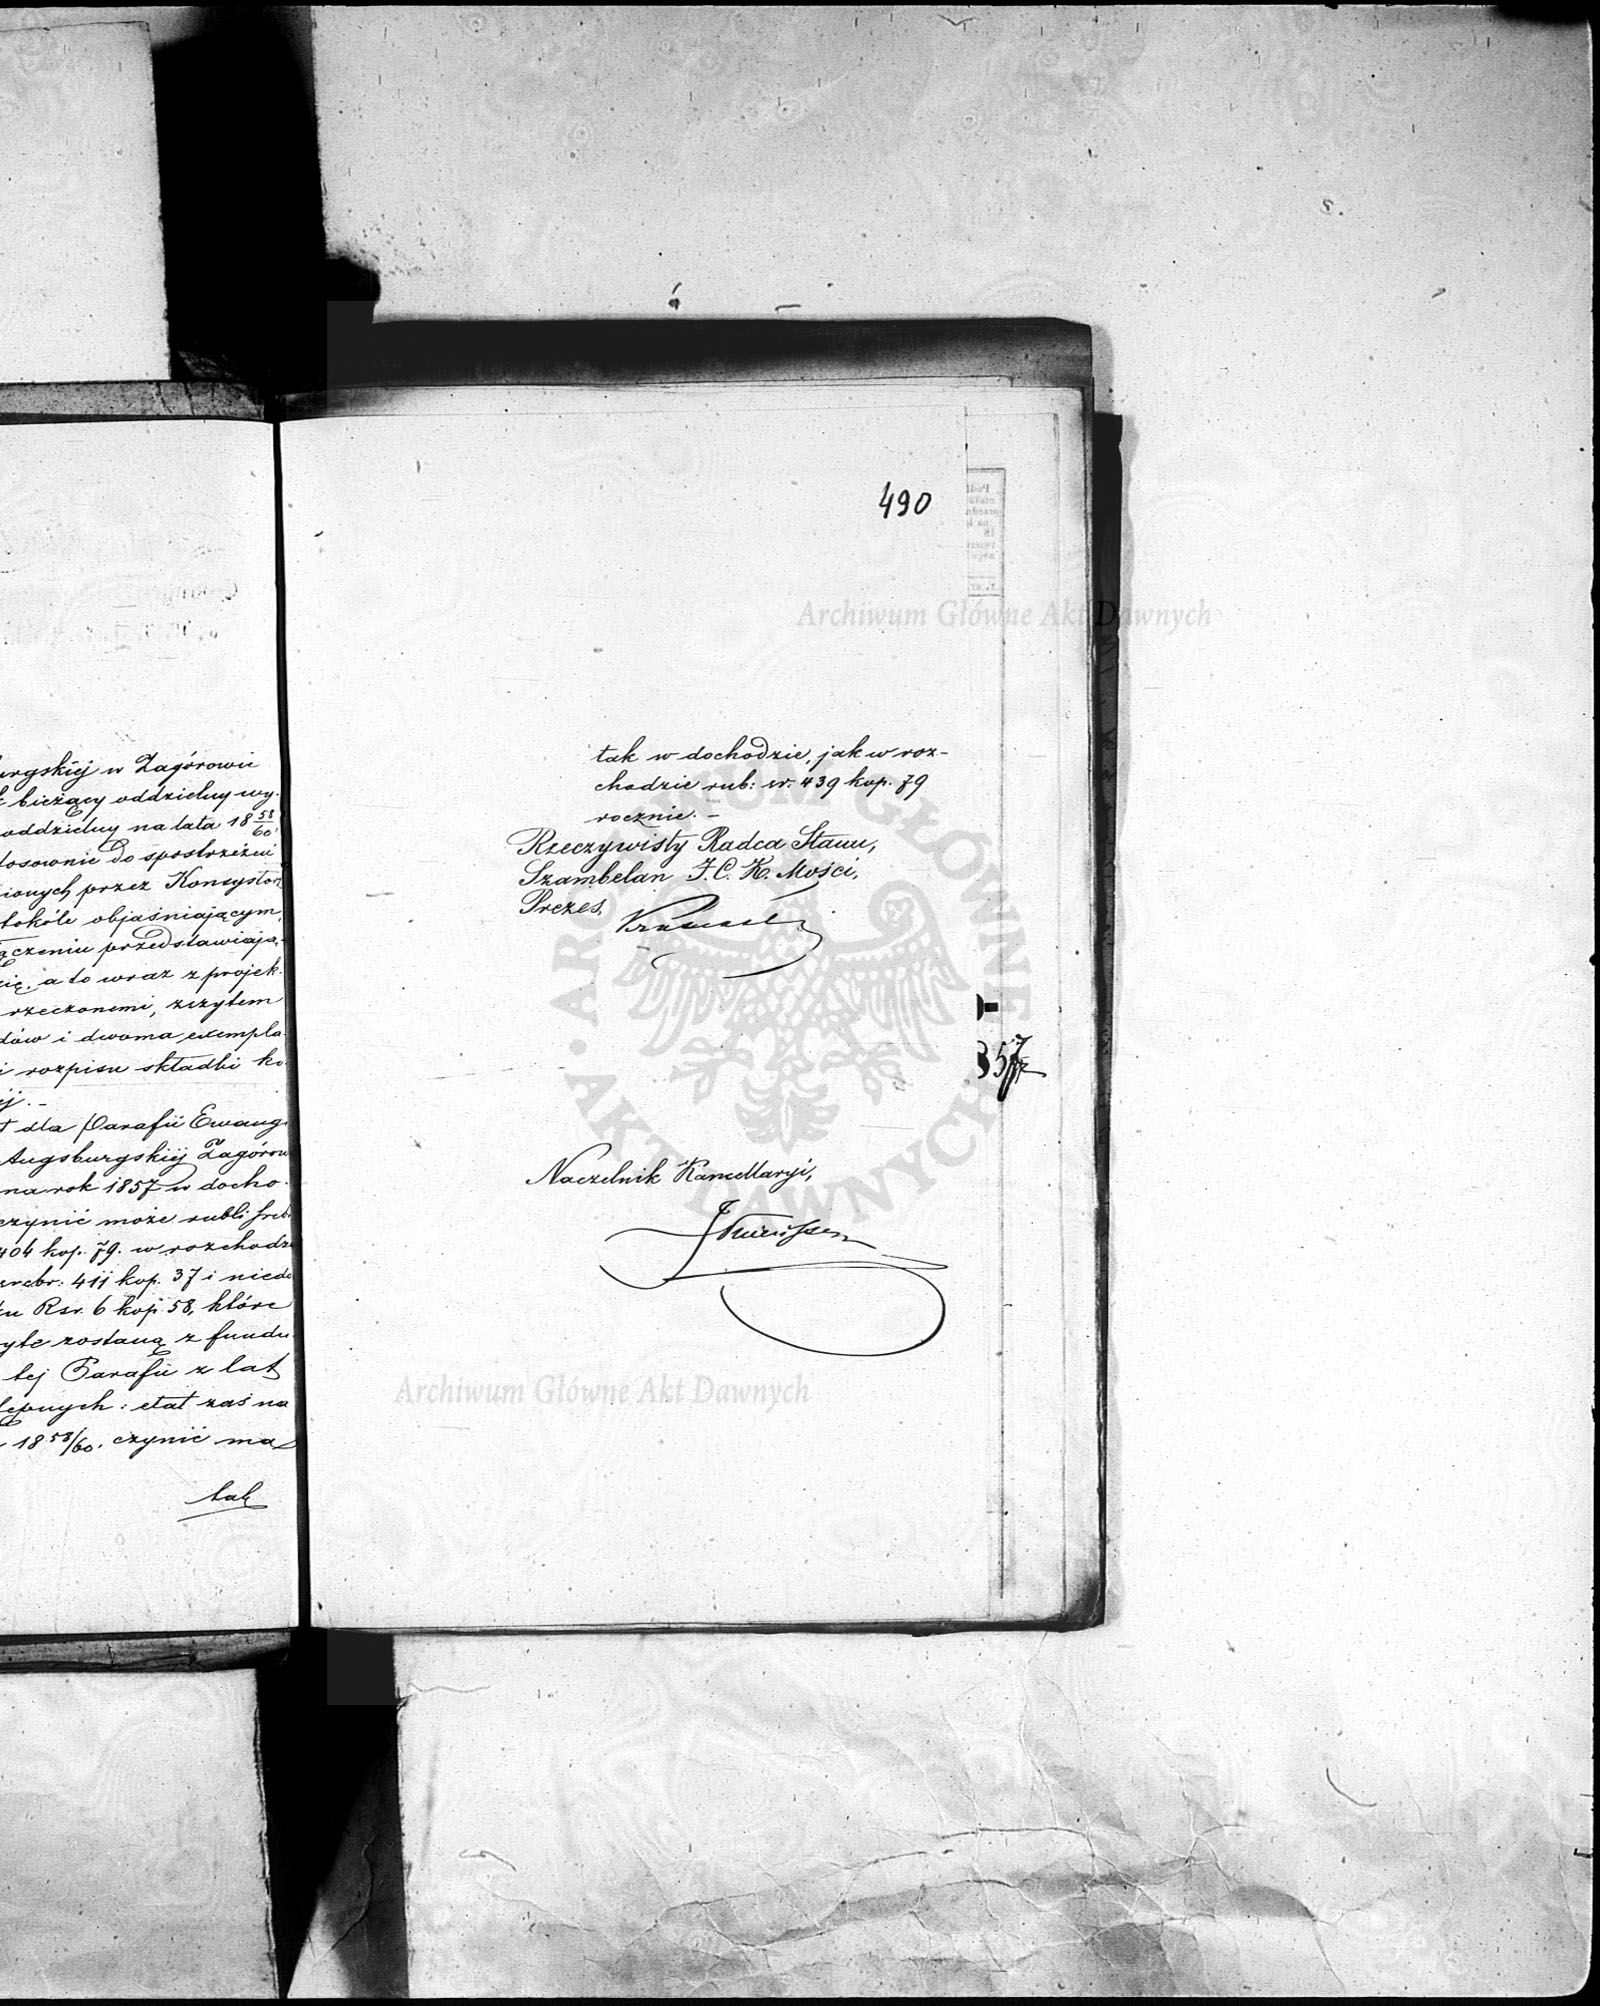 urgskiéj w Zagórowie
bieżący oddzielny wy-
oddzielny na lata 18 58/60
tosownie do spostrzeżeń
ionych przez Konsystorz
tokóle objaśniającym,
ączeniu przedstawiają-
się, a to wraz z projek-
rzeczonemi, zszytem
dów i dwoma exempla-
i rozpisu składki ko-
ej. -
t dla Parafii Ewang:
Augsburgskiéj Zagórow
na rok 1857 w docho-
czynić może rubli sreb:
404 kop. 79. w rozchodzie
srebr: 411 kop. 37 i niedo
ku Rsr. 6 kop 58, które
yte zostaną z fundu-
téj Parafii z lat
tępnych: etat zaś na
18 58/60. czynić ma
tak
490
tak w dochodzie, jak w roz-
chodzie rub: sr. 439 kop. 79
rocznie. -
Rzeczywisty Radca Stanu,
Szambelan J. C. K. Mości,
Prezes,
357
Naczelnik Kancellaryi,
Archiwum Główne Akt Dawnych
ARCHIWUM GŁÓWNE AKT DAWNYCH
Archiwum Główne Akt Dawnych